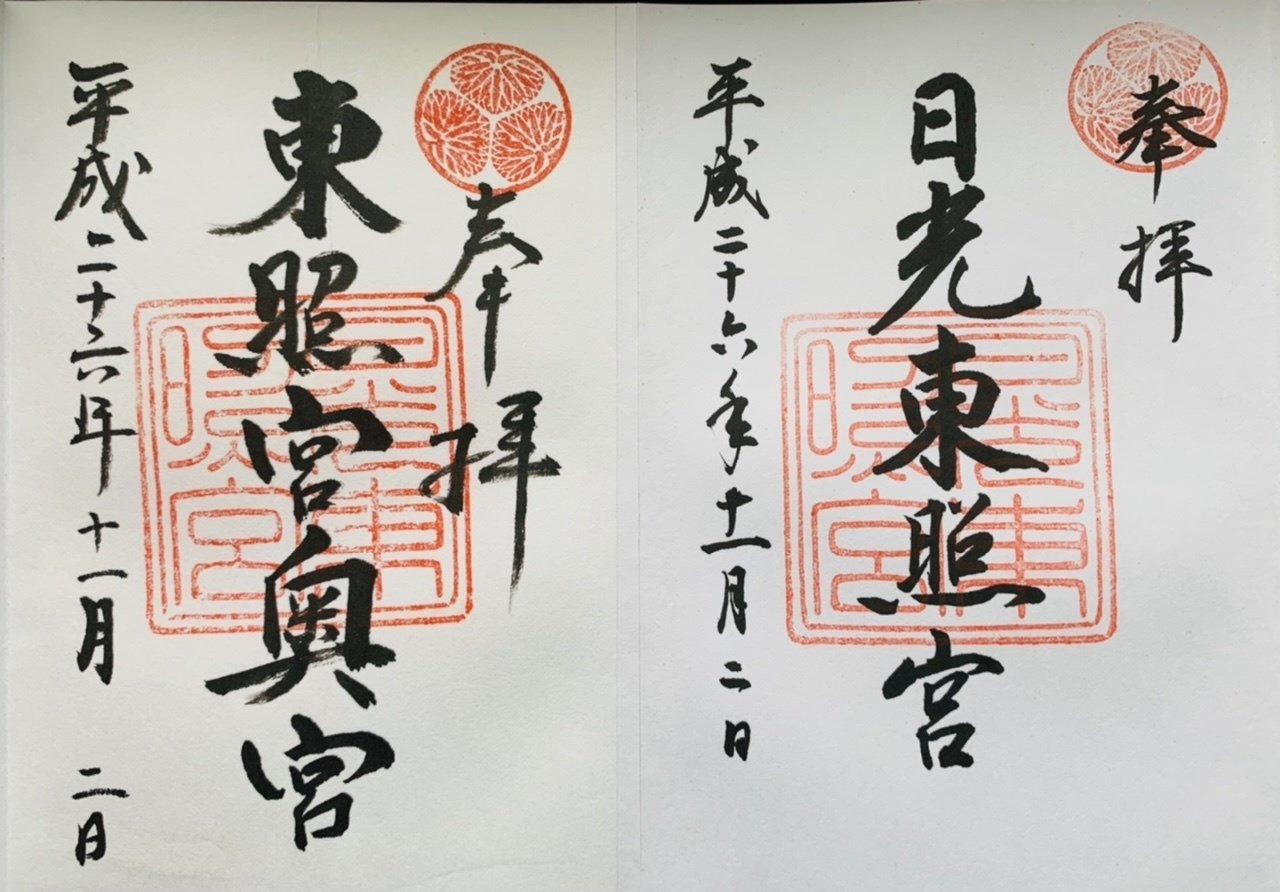 奉拝
日光東照宮
平成二十六年十一月二日
奉拝
東照宮奥宮
平成二十六年十一月二日